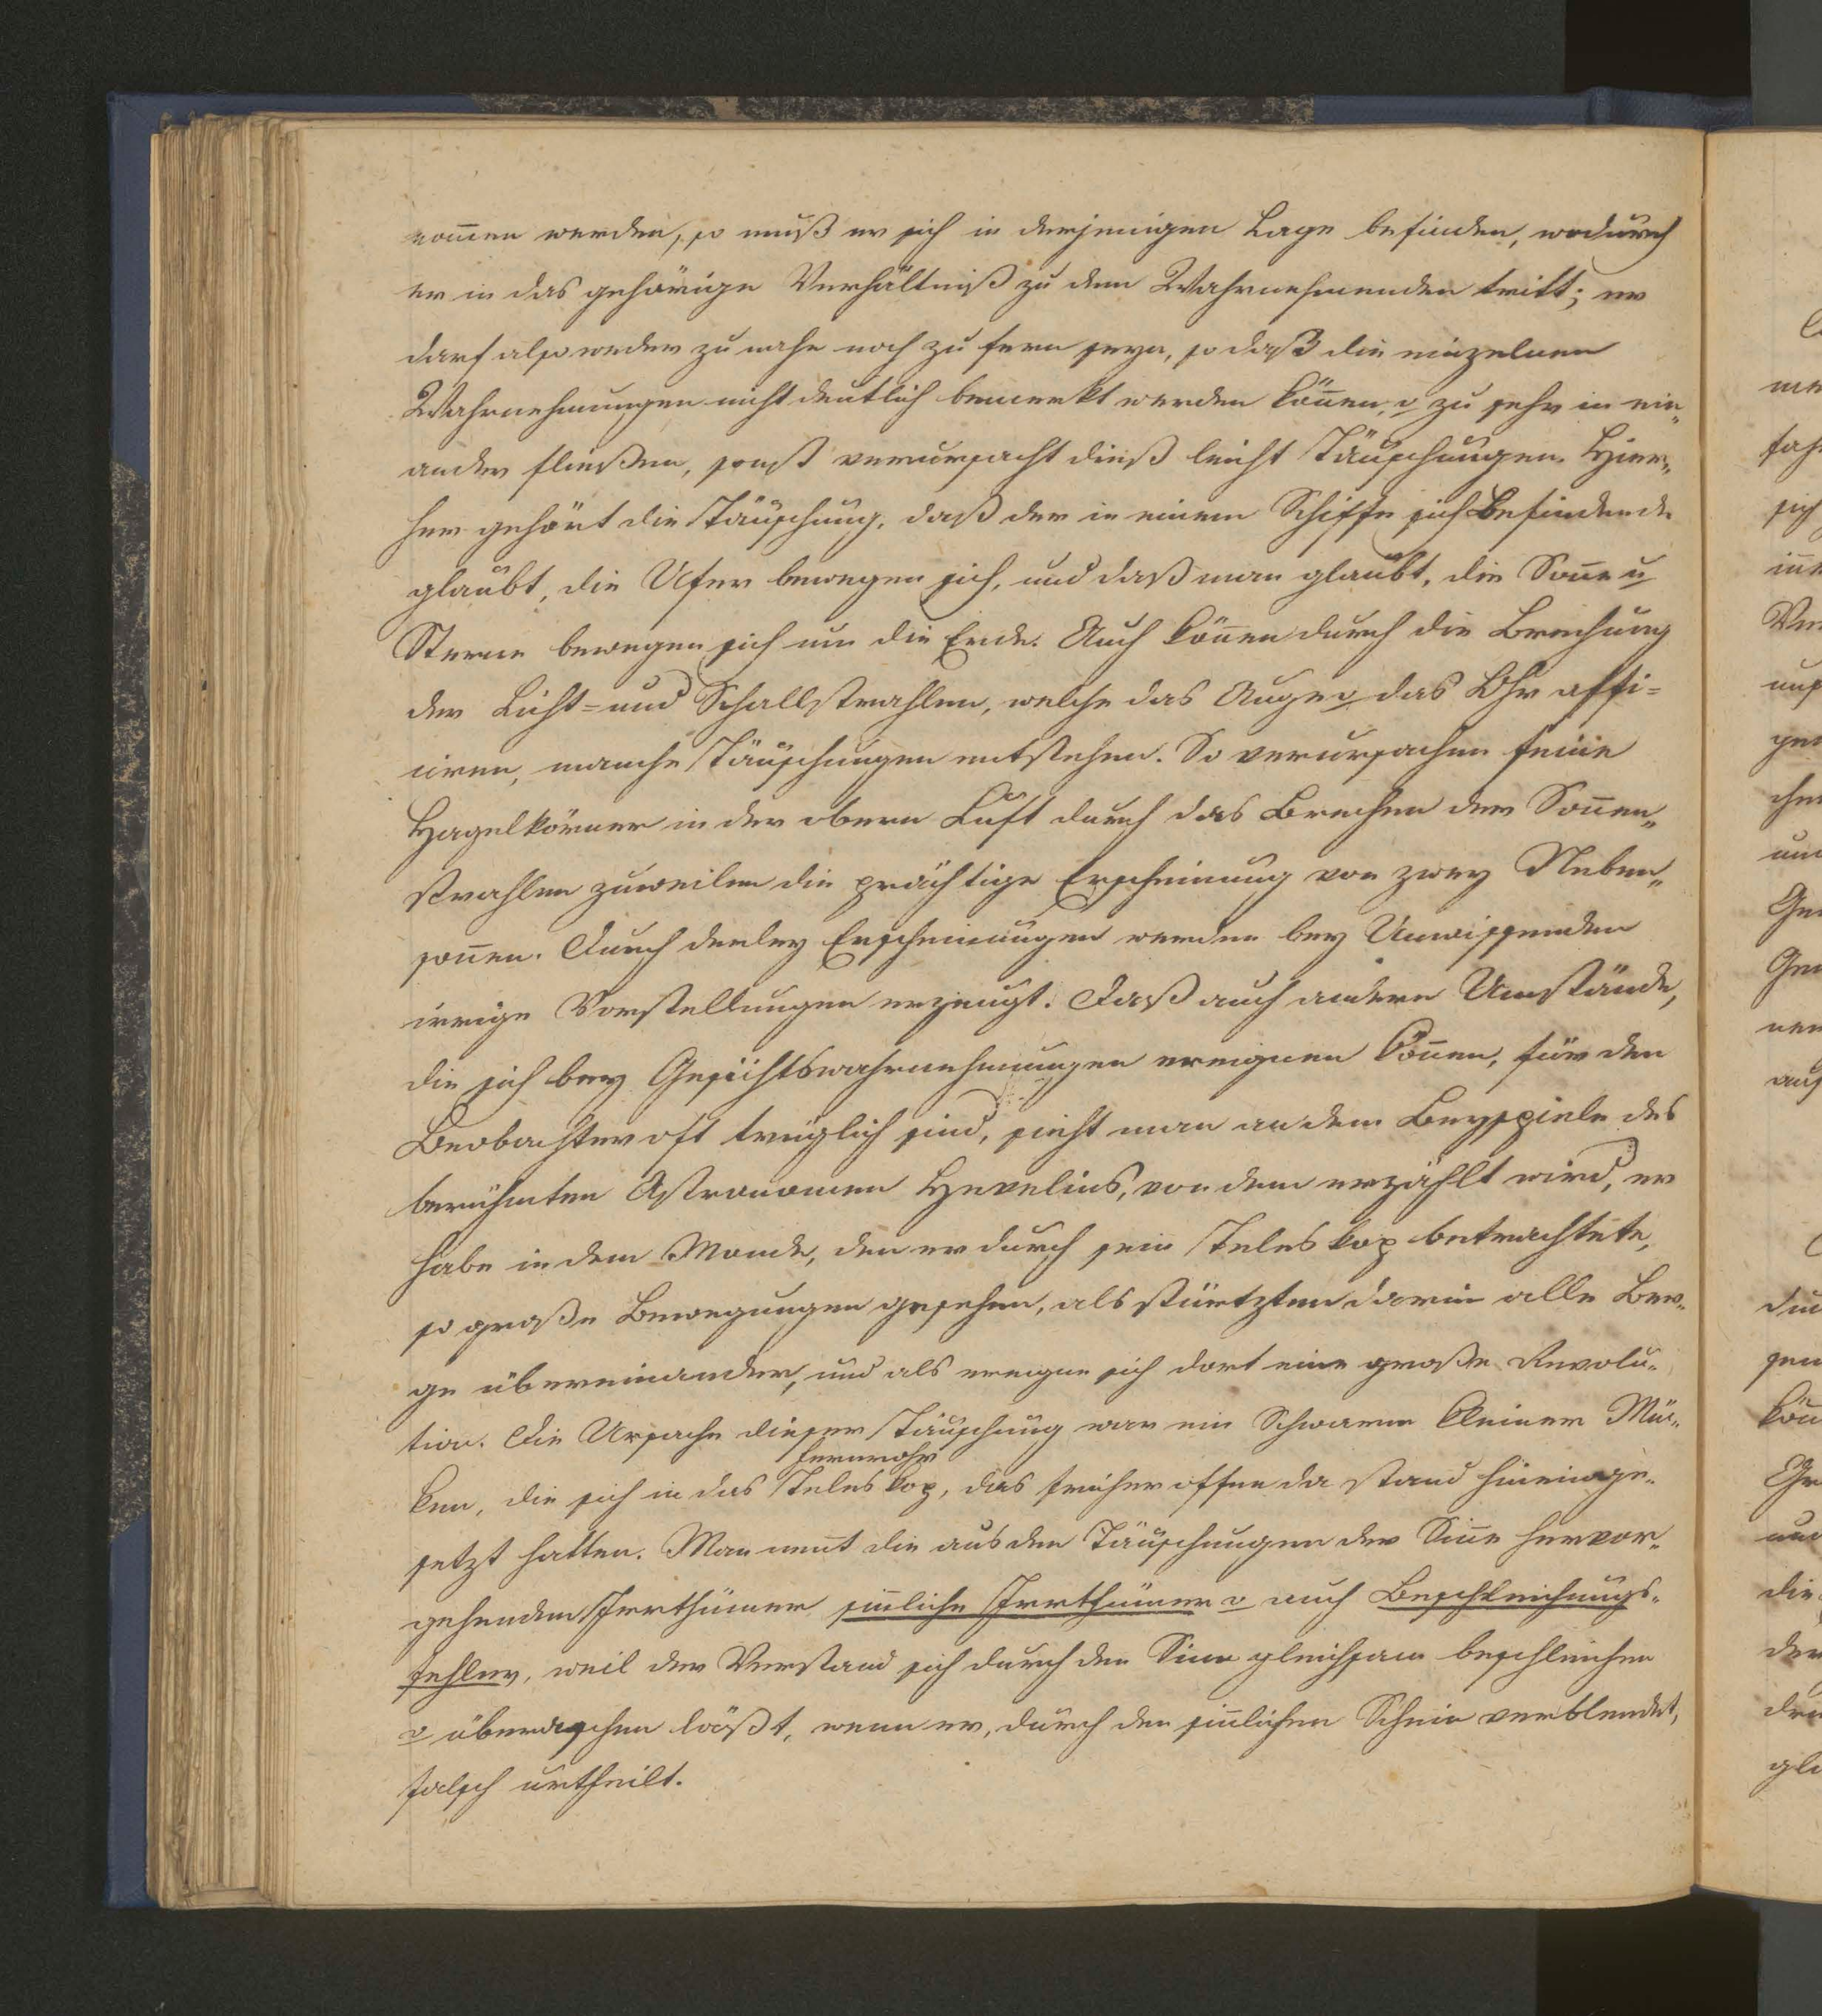 nom̅en werden, so muß er sich in derjenigen Lage befinden, wodurch
er in das gehörige Verhältniß zu dem Wahrnehmenden tritt; er
darf also weder zu nahe noch zu fern seyn, so daß die einzelnen
Wahrnehmungen nicht deutlich bemerkt werden kön̅en, u zu sehr in ein„
ander fließen, sonst verursacht dieß leicht Täuschungen. Hier„
her gehört die Täuschung, daß der in einem Schiffe sich Befindende
glaubt, die Ufer bewegen sich, und daß man glaubt, die Son̅e u
Sterne bewegen sich um die Erde. Auch kön̅en durch die Brechung
der Licht= und Schallstrahlen, welche das Auge u das Ohr affi=
ciren, manche Täuschungen entstehen. So verursachen feine
Hagelkörner in der obern Luft durch das Brechen der Son̅en„
strahlen zuweilen die prächtige Erscheinung von zwey Neben„
son̅en. Durch derley Erscheinungen werden bey Unwissenden
irrige Vorstellungen erzeugt. Daß auch andere Umstände,
die sich bey Gesichtswahrnehmungen ereignen kön̅en, für den
Beobachter oft trüglich sind, sieht man an dem Beyspiele des
berühmten Astronomen Hevelius, von dem erzählt wird, er
habe in dem Monde, den er durch sein Teleskop betrachtete,
so große Bewegungen gesehen, als stürtzten darin alle Ber„
ge übereinander, und als ereigne sich dort eine große Revolu„
tion. Die Ursache dieser Täuschung war ein Schwarm kleiner Mü„
Fernrohr
ken, die sich in das Teleskop, das früher offen da stand hineinge„
setzt hatten. Man nen̅t die aus den Täuschungen der Sin̅e hervor„
gehenden Irrthümer sin̅liche Irrthümer u auch Beschleichungs„
fehler, weil der Verstand sich durch den Sinn gleichsam beschleichen
u überraschen läßt, wenn er, durch den sin̅lichen Schein verblendet,
falsch urtheilt.